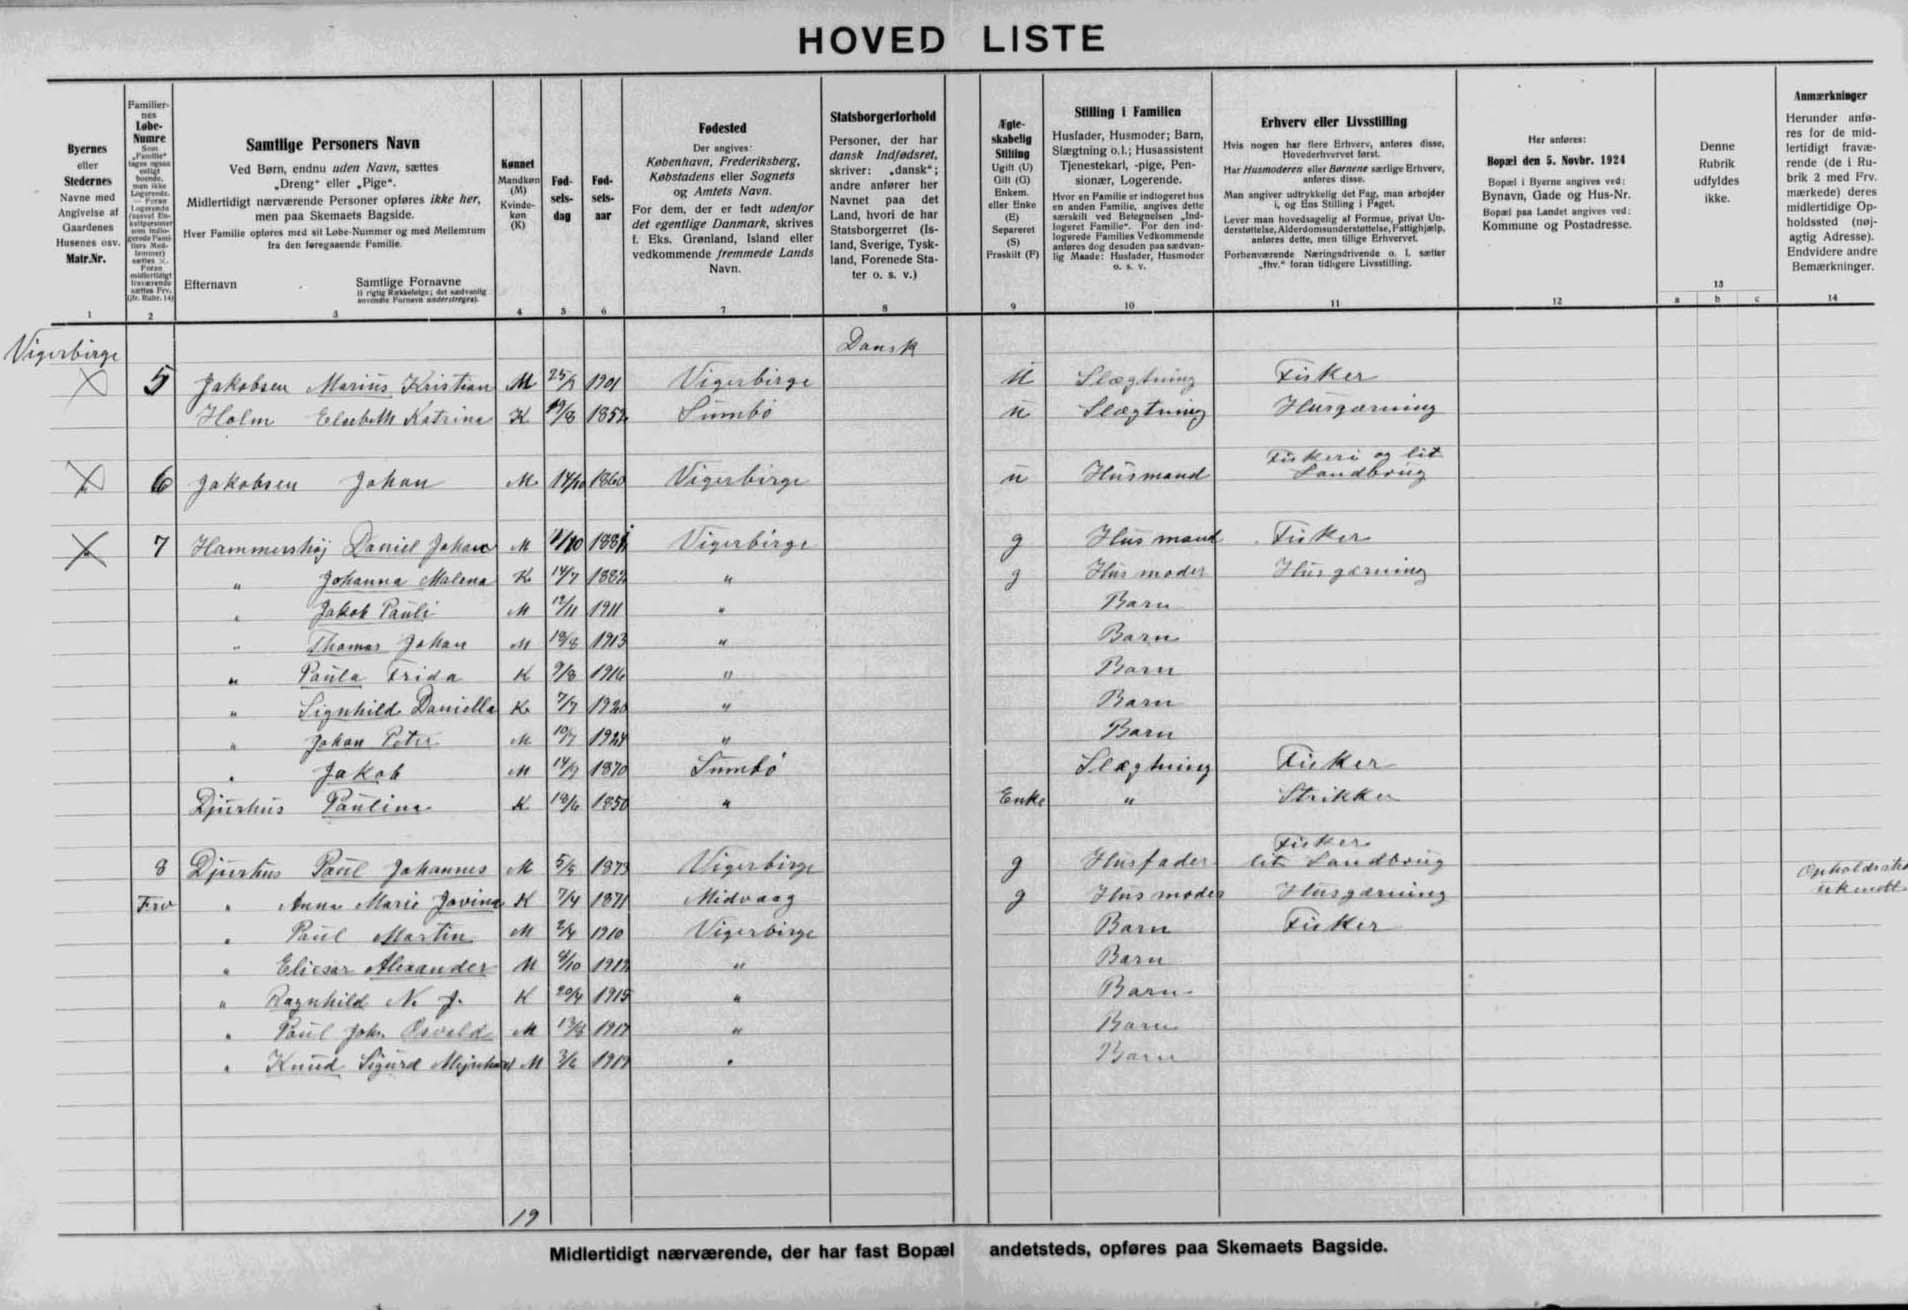 HOVED LISTE
Byernes
eller
Stedernes
Navne med
Angivelse af
Gaardenes
Husenes osv.
Matr.Nr.
1
Familier-
nes
Løbe-
Numre
Som
„Familie“
tages ogsaa
enligt
boende,
man ikke
Logerende.
— Foran
Logerende
sættes ×.
Foran
midlertidigt
fraværende
sættes Frv.
(jfr. Rubr. 14)
2
Samtlige Personers Navn
Ved Børn, endnu uden Navn, sættes
„Dreng“ eller „Pige“.
Midlertidigt nærværende Personer opføres ikke her,
men paa Skemaets Bagside.
Hver Familie opføres med sit Løbe-Nummer og med Mellemrum
fra den foregaaende Familie.
Efternavn Samtlige Fornavne
(i rigtig Rækkefølge; det sædvanlig
anvendte Fornavn understreges).
3
Kønnet
Mandkøn
(M)
Kvinde-
køn
(K)
4
Fød-
sels-
dag
5
Fød-
sels-
aar
6
Fødested
Der angives:
København, Frederiksberg,
Købstadens eller Sognets
og Amtets Navn.
For dem, der er født udenfor
det egentlige Danmark, skrives
f. Eks. Grønland, Island eller
vedkommende fremmede Lands
Navn.
7
Statsborgerforhold
Personer, der har
dansk Indfødsret,
skriver: „dansk“;
andre anfører her
Navnet paa det
Land, hvori de har
Statsborgerret (Is-
land, Sverige, Tysk-
land, Forenede Sta-
ter o. s. v.)
8
Ægte-
skabelig
Stilling
Ugift (U)
Gift (G)
Enkem.
eller Enke
(E)
Separeret
(S)
Fraskilt (F)
9
Stilling i Familien
Husfader, Husmoder; Barn,
Slægtning o.l.; Husassistent
Tjenestekarl, -pige, Pen-
sionær, Logerende.
Hvor en Familie er indlogeret hos
en anden Familie, angives dette
særskilt ved Betegnelsen „Ind-
logeret Familie“. For den ind-
logerede Families Vedkommende
anføres dog desuden paa sædvan-
lig Maade: Husfader, Husmoder
o. s. v.
10
Erhverv eller Livsstilling
Hvis nogen har flere Erhverv, anføres disse,
Hovederhvervet først.
Har Husmoderen eller Børnene særlige Erhverv,
anføres disse.
Man angiver udtrykkelig det Fag, man arbejder
i, og Ens Stilling i Faget.
Lever man hovedsagelig af Formue, privat Un-
derstøttelse, Alderdomsunderstøttelse, Fattighjælp,
anføres dette, men tillige Erhvervet.
Forhenværende Næringsdrivende o. l. sætter
„fhv.“ foran tidligere Livsstilling.
11
Her anføres:
Bopæl den 5. Novbr. 1924
Bopæl i Byerne angives ved:
Bynavn, Gade og Hus-Nr.
Bopæl paa Landet angives ved:
Kommune og Postadresse.
12
Denne
Rubrik
udfyldes
ikke.
13
a b c
Anmærkninger
Herunder anfø-
res for de mid-
lertidigt fravæ-
rende (de i Ru-
brik 2 med Frv.
mærkede) deres
midlertidige Op-
holdssted (nøj-
agtig Adresse).
Endvidere andre
Bemærkninger.
14
Vigerbirge Dansk
5 Jakobsen Marius Kristian M 25/9 1901 Vigerbirge U Slægtning Fisker
Holm Elsebeth Katrina K 19/8 1852 Sumbø u Slægtning Husgærning
6 Jakobsen Johan M 14/10 1860 Vigerbirge u Husmand Fiskeri og lit
Landbrug
7 Hammershøj Daniel Johan M 1881 Vigerbirge g Husmand Fisker
„ Johanna Malena K 14/7 1882 „ g Husmoder Husgærning
„ Jakob Pauli M 12/11 1911 „ Barn
„ Thomas Johan M 18/8 1913 „ Barn
„ Paula Frida K 9/8 1916 „ Barn
„ Signhild Daniella K 7/7 1920 „ Barn
„ Johan Peter M 10/7 1924 „ Barn
„ Jakob M 14/9 1870 Sumbø Slægtning Fisker
Djurhus Paulina K 18/6 1850 „ Enke „ Strikker
8 Djurhus Paul Johannes M 5/8 1873 Vigerbirge g Husfader Fisker
lit Landbrug
Frv „ Anna Marie Jovina K 7/4 1871 Midvaag g Husmoder Husgærning Opholdssted
ukendt
„ Paul Martin M 2/4 1910 Vigerbirge Barn Fisker
„ Eliesar Alexander M 8/10 1912 „ Barn
„ Ragnhild N. J. K 20/4 1915 „ Barn
„ Paul Joh. Osvald M 13/8 1917 „ Barn
„ Knud Sigurd M 3/6 1919 „ Barn
19
Midlertidigt nærværende, der har fast Bopæl andetsteds, opføres paa Skemaets Bagside.